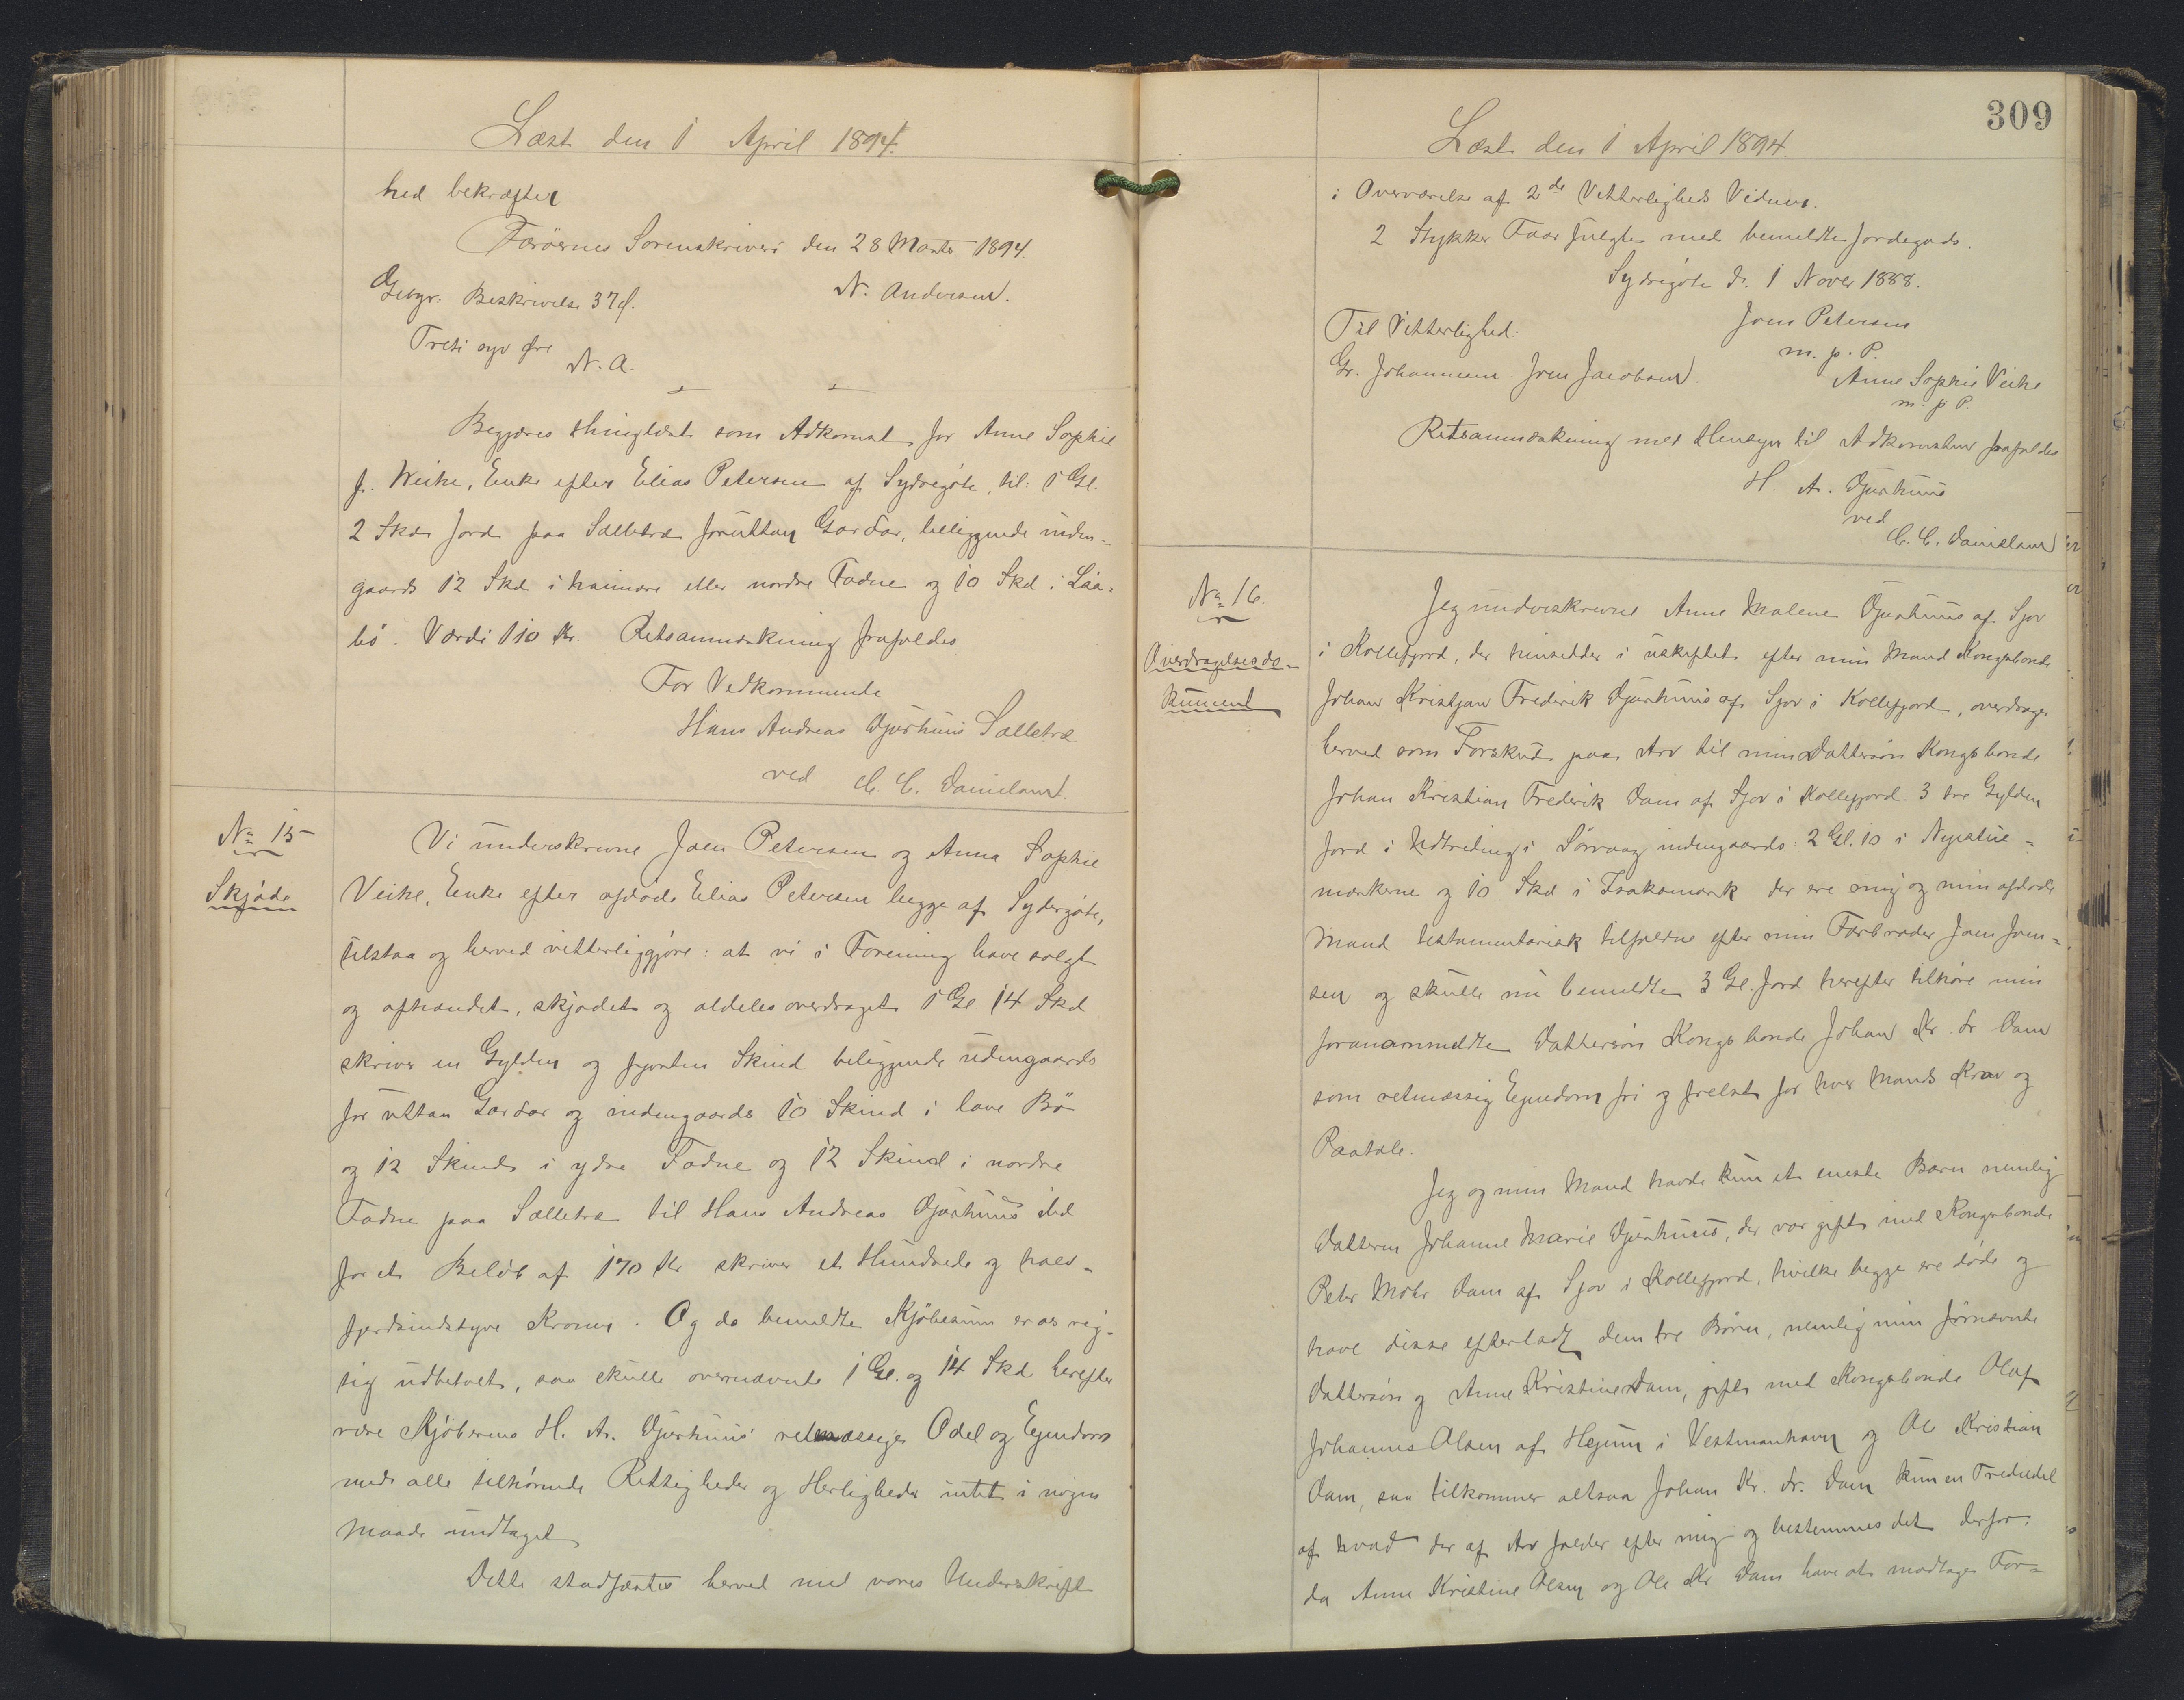 Læst den 1 April 1894.
hed bekræfter
Færöernes Sorenskriveri den 28 Marts 1894.
Gebyr: Beskrivelse 37 Ø.
N. Andersen.
Treti syv Øre
N. A.
Begjæres thinglæst som Adkomst for Anne Sophie
f. Weihe, Enke efter Elias Petersen af Sydregöte, til: 1 Gl.
2 Skd Jord paa Selletræ forúttan Garðar, beliggende inden-
gaards 12 Skd i haimare eller nordre Tadne og 10 Skd i Láa-
bö. Værdi 110 Kr. Retsanmærkning frafaldes
For Vedkommende
Hans Andreas Djurhuus Selletræ
ved C. C. Danielsen.
No 15
Skjøde
Vi underskrevne Joen Petersen og Anna Sophie
Veihe, Enke efter afdøde Elias Petersen begge af Sydregöte,
tilstaa og herved vitterliggjöre: at vi i Forening have solgt
og afhændet, skjødet og aldeles overdraget 1 Gl. 14 Skd
skriver en Gylden og fjorten Skind beliggende udengaards
for uttan Garðar og indengaards 10 Skind i lave Bö
og 12 Skind i ydre Tadne og 12 Skind i nordre
Tadne paa Selletræ til Hans Andreas Djurhuus ibd
for et Beløb af 170 Kr skriver et Hundrede og halv-
fjerdsindstyve Kroner. Og da bemeldte Kjøbesum er os rig-
tig udbetalt, saa skulle overnævnte 1 Gl. og 14 Skd herefter
være Kjøberens H. A. Djurhuus' retmæssige Odel og Eyendom
med alle tilhørende Rettigheder og Herligheder intet i nogen
Maade undtaget
Dette stadfæstes herved med vores Underskrift
309
Læst den 1 April 1894.
i Overværelse af 2de Vitterligheds Vidner.
2 Stykker Faar fulgte med bemeldte Jordegods.
Sydrigöte d. 1 Novbr 1888.
Til Vitterlighed:
Joen Petersen
m. p. P.
Gr. Johannesen. Joen Jacobsen.
Anne Sophie Veihe
m. p. P.
Retsanmærkning med Hensyn til Adkomsten frafaldes
H. A. Djurhuus
ved
C. C. Danielsen
No 16.
Overdragelsesdo-
kument
Jeg underskrevne Anne Malene Djurhuus af Sjov
i Kollefjord, der hensidder i uskiftet efter min Mand Kongsbonde
Johan Kristjan Frederik Djurhuus af Sjov i Kollefjord, overdrager
herved som Forskud paa Arv til min Dattersön Kongsbonde
Johan Kristian Frederik Dam af Sjov i Kollefjord. 3 tre Gylden
Jord i Udtreding i Sörvaag indengaards: 2 Gl. 10 i Nyestue-
mørkerne og 10 Skd i Isaksmørk der ere mig og min afdøde
Mand testamentarisk tilfaldne efter min Farbroder Joen Joen-
sen og skulle nu bemeldte 3 Gl. Jord herefter tilhöre min
forananmeldte Dattersön Kongsbonde Johan Kr. Fr Dam
som retmæssig Eyendom fri og frelst for hver Mands Krav og
Paatale.
Jeg og min Mand havde kun et eneste Barn nemlig
Datteren Johanne Marie Djurhuus, der var gift med Kongsbonde
Peter Mohr Dam af Sjov i Kollefjord, hvilke begge ere døde og
have disse efterladt dem tre Børn, nemlig min førnævnte
Dattersön og Anne Kristine Dam, gift med Kongsbonde Olaf
Johannes Olsen af Heyum i Vestmanhavn og Ole Kristian
Dam, saa tilkommer altsaa Johan Kr. Fr. Dam kun en Trediedel
af hvad der af Arv falder efter mig og bestemmes det derfor:
da Anne Kristine Olsen og Ole Kr Dam have at modtage For-